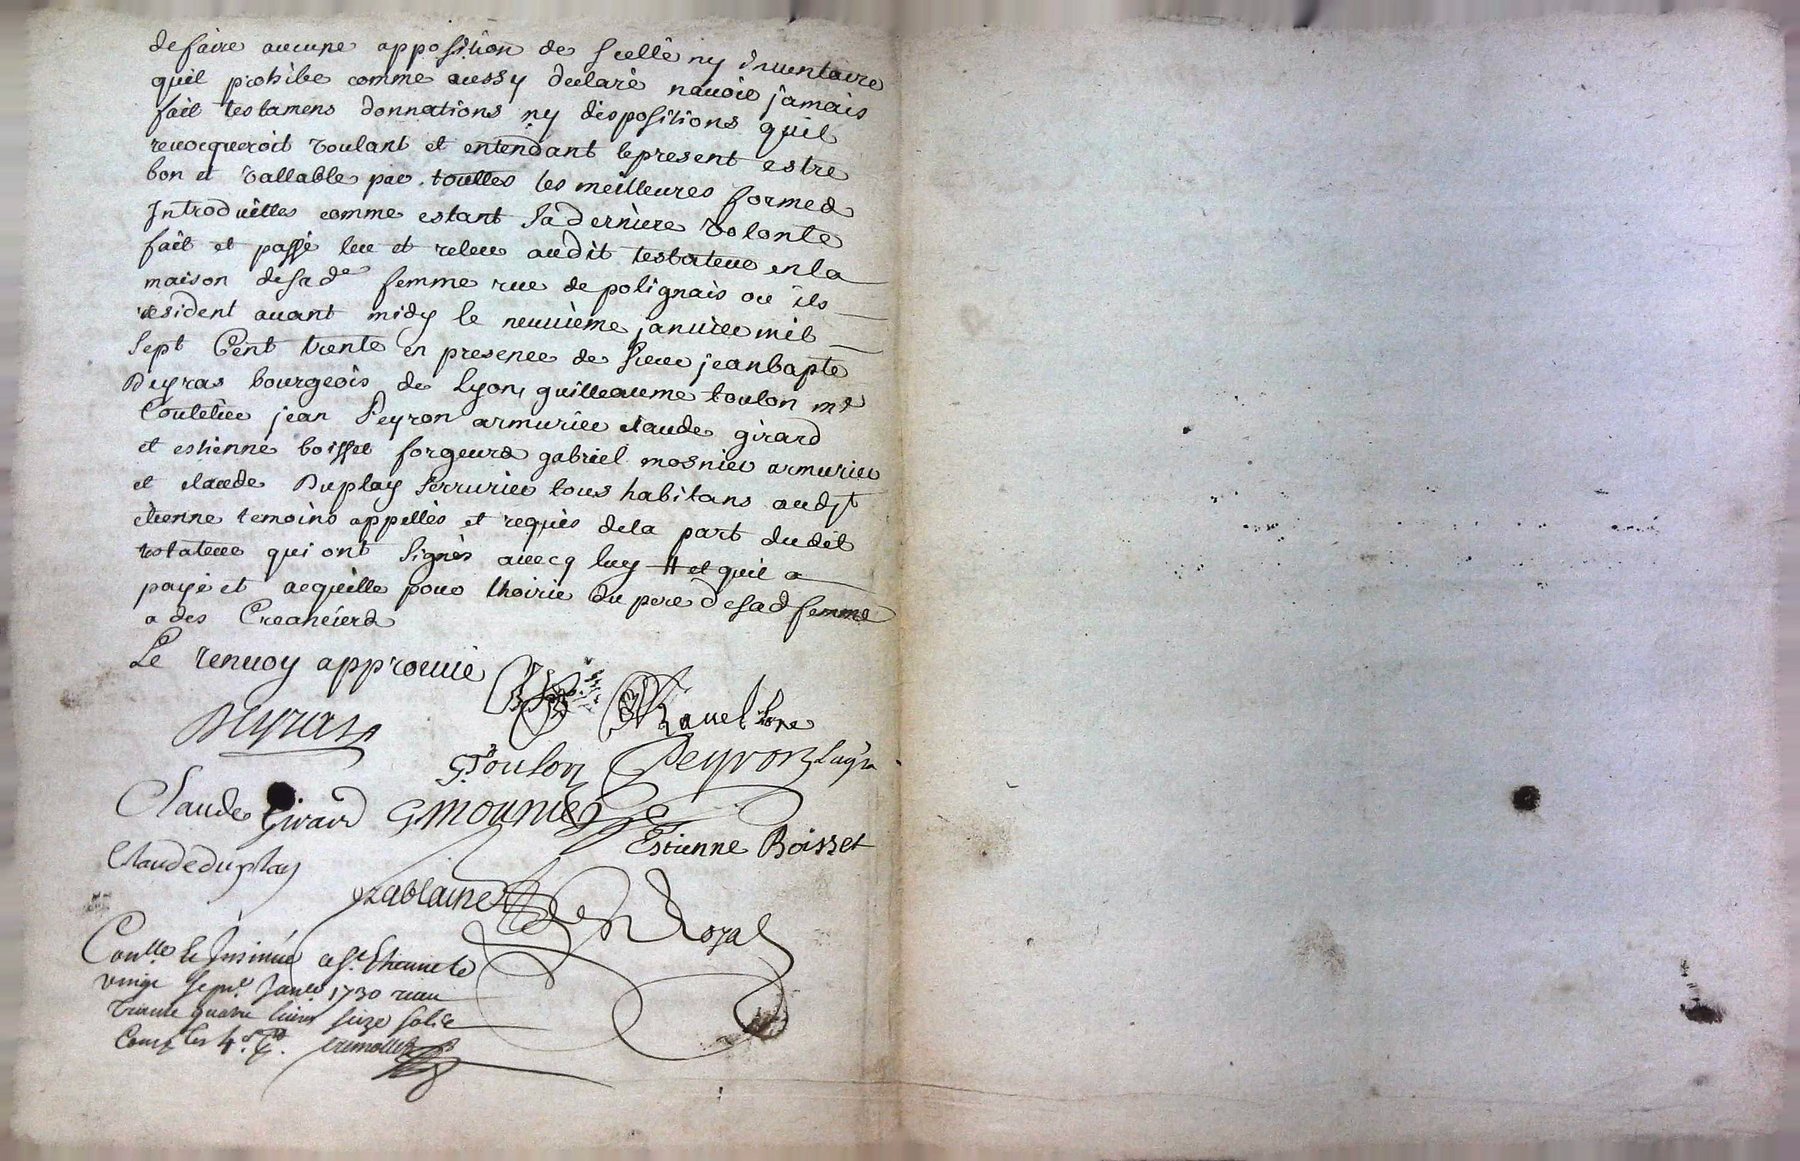 defaire aucune apposition de scellé ny Inventaire
quil prohibe comme aussy declaré navoir jamais
fait testamens donnations ny dispositions quil
revocqueroit voulant et entendant lepresent estre
bon et vallable par touttes les meilleures formes
Introduittes comme estant sa derniere volonte
fait et passé leu et releu audit testateur en la
maison desade femme rue de polignais ou ils
resident avant midy le neuvième janvier mil
Sept Cent trente en presence de sieur jeanbapte
Deyras bourgeois de Lyon, guilleaume toulon md
Coutelier jean Peyron armurier claude girard
et estienne boisset forgeurs gabriel mosnier armurier
et claude Duplay serrurier tous habitans audjt
etienne temoins appellés et requis dela part dudit
testateur qui ont signés avecq luy # et quil a
payé et acquitte pour lhoirie du pere desad femme
a des Creanciers
Le renvoy approuvé
Deyras
Ravel
GToulon Peyron
Claude Girard GMounier
Estienne Boisset
Claudeduplay
Rablaine
Conlle et Insinué a St Etienne le
vingt sept Janer 1730 receu
trente quatre livres seize sols
Compr les 4s